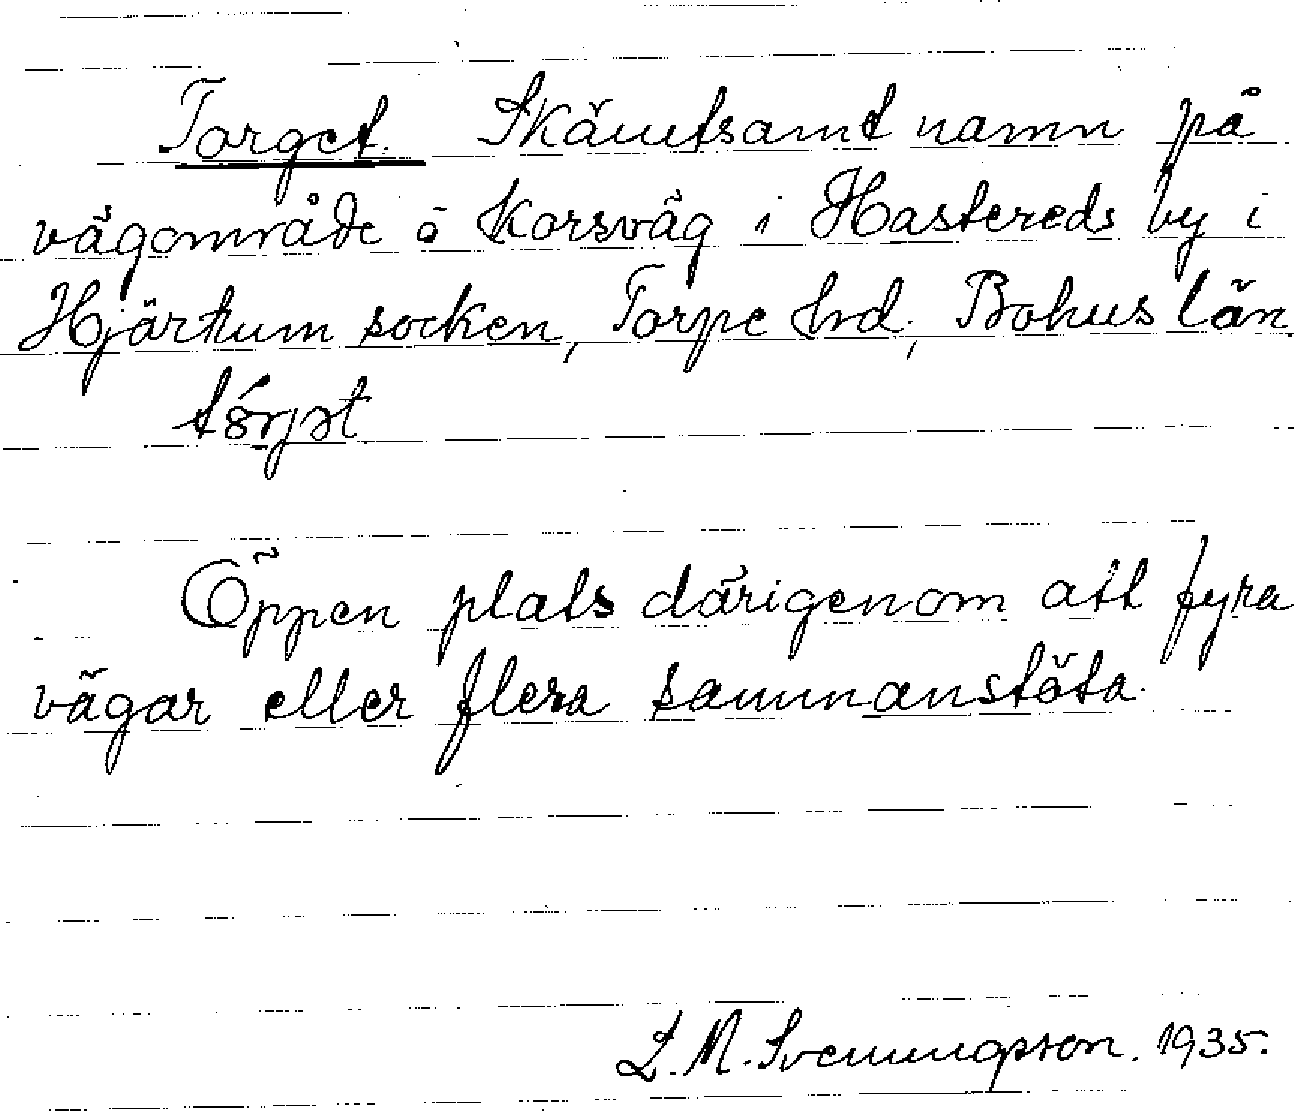 Torget. Skämtsamt namn på
vägområde å korsväg i Hastereds by i
Hjärtum socken, Torpe hrd., Bohus län.
Öppen plats därigenom att fyra
vägar eller flera sammanstöta.
L. M. Svenungsson. 1935.